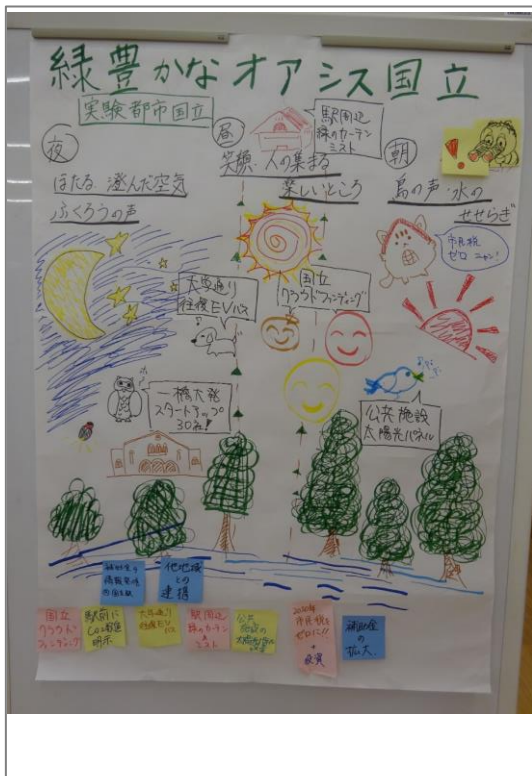 緑豊かなオアシス国立
実験都市国立
夜
ほたる 澄んだ空気
ふくろうの声
昼
笑顔・人の集まる
楽しいところ
駅周辺
緑のカーテン
ミスト
朝
鳥の声・水の
せせらぎ
!
市民税
ゼロ ニャン!
大学通り
往復EVバス
国立
クラウドファンディング
一橋大発
スタートアップ
30社!
公共施設
太陽光パネル
補助金の
情報発信
他地域
との
連携
国立
クラウド
ファンディング
駅前に
CO2濃度
明示
大学通り
往復EV
バス
駅周辺
緑のカーテン
ミスト
公共
施設の
太陽光パネル
設置
市民税を
ゼロに!!
+
投資
補助金
の
拡大